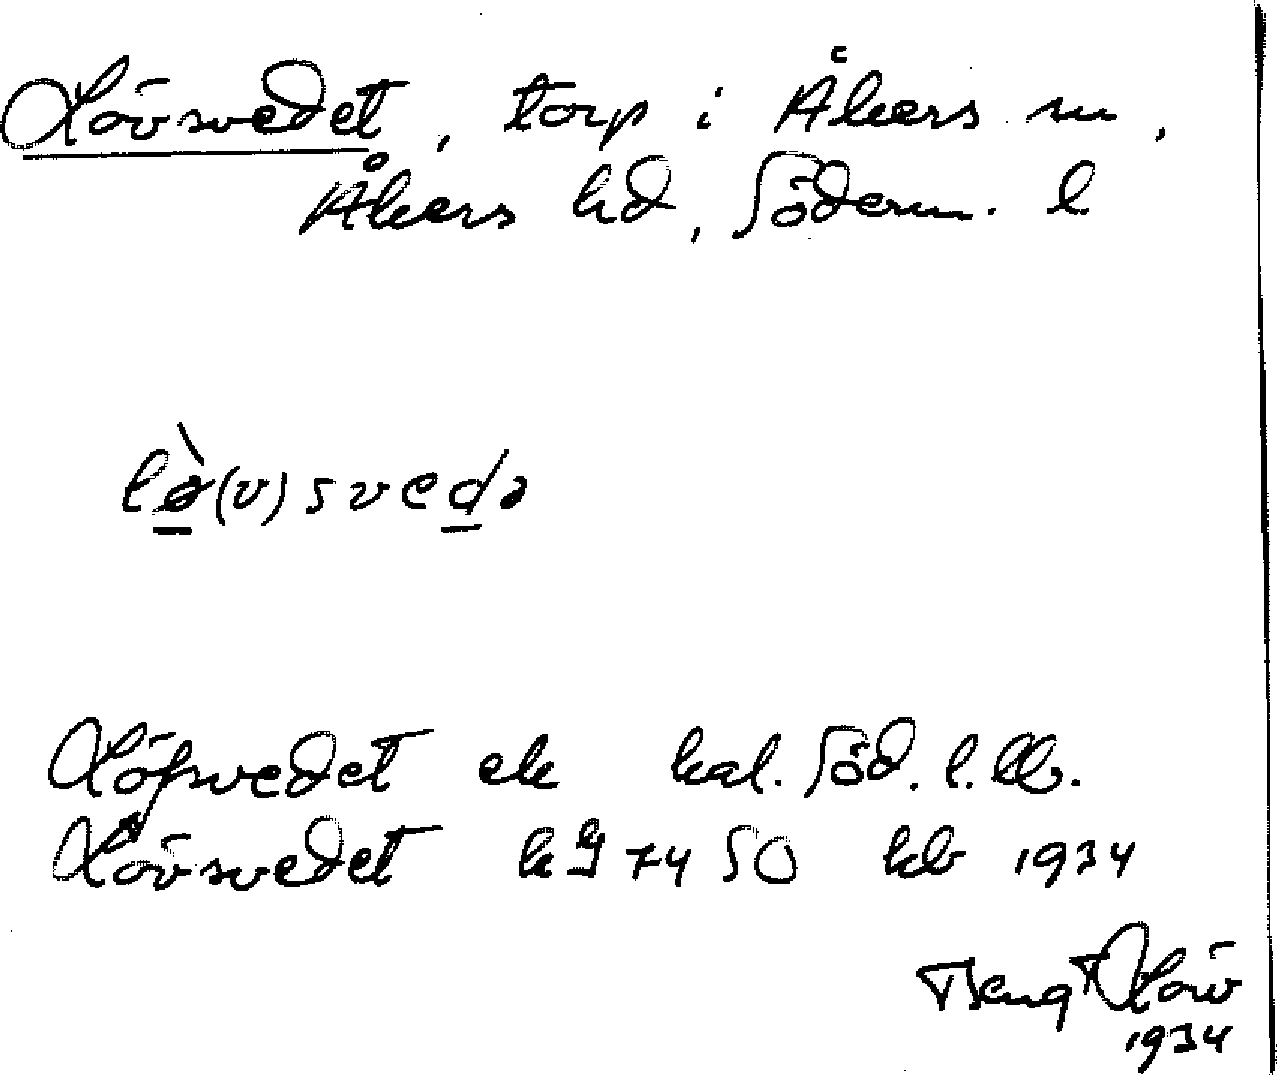 Lövsvedet, torp i Åkers sn,
Åkers hd, Söderm. l
lø̀(v)svedə
Löfsvedet ek kal. Söd. l. lb.
Lövsvedet hg 74 SO kb 1934
Bengt Löw
1934